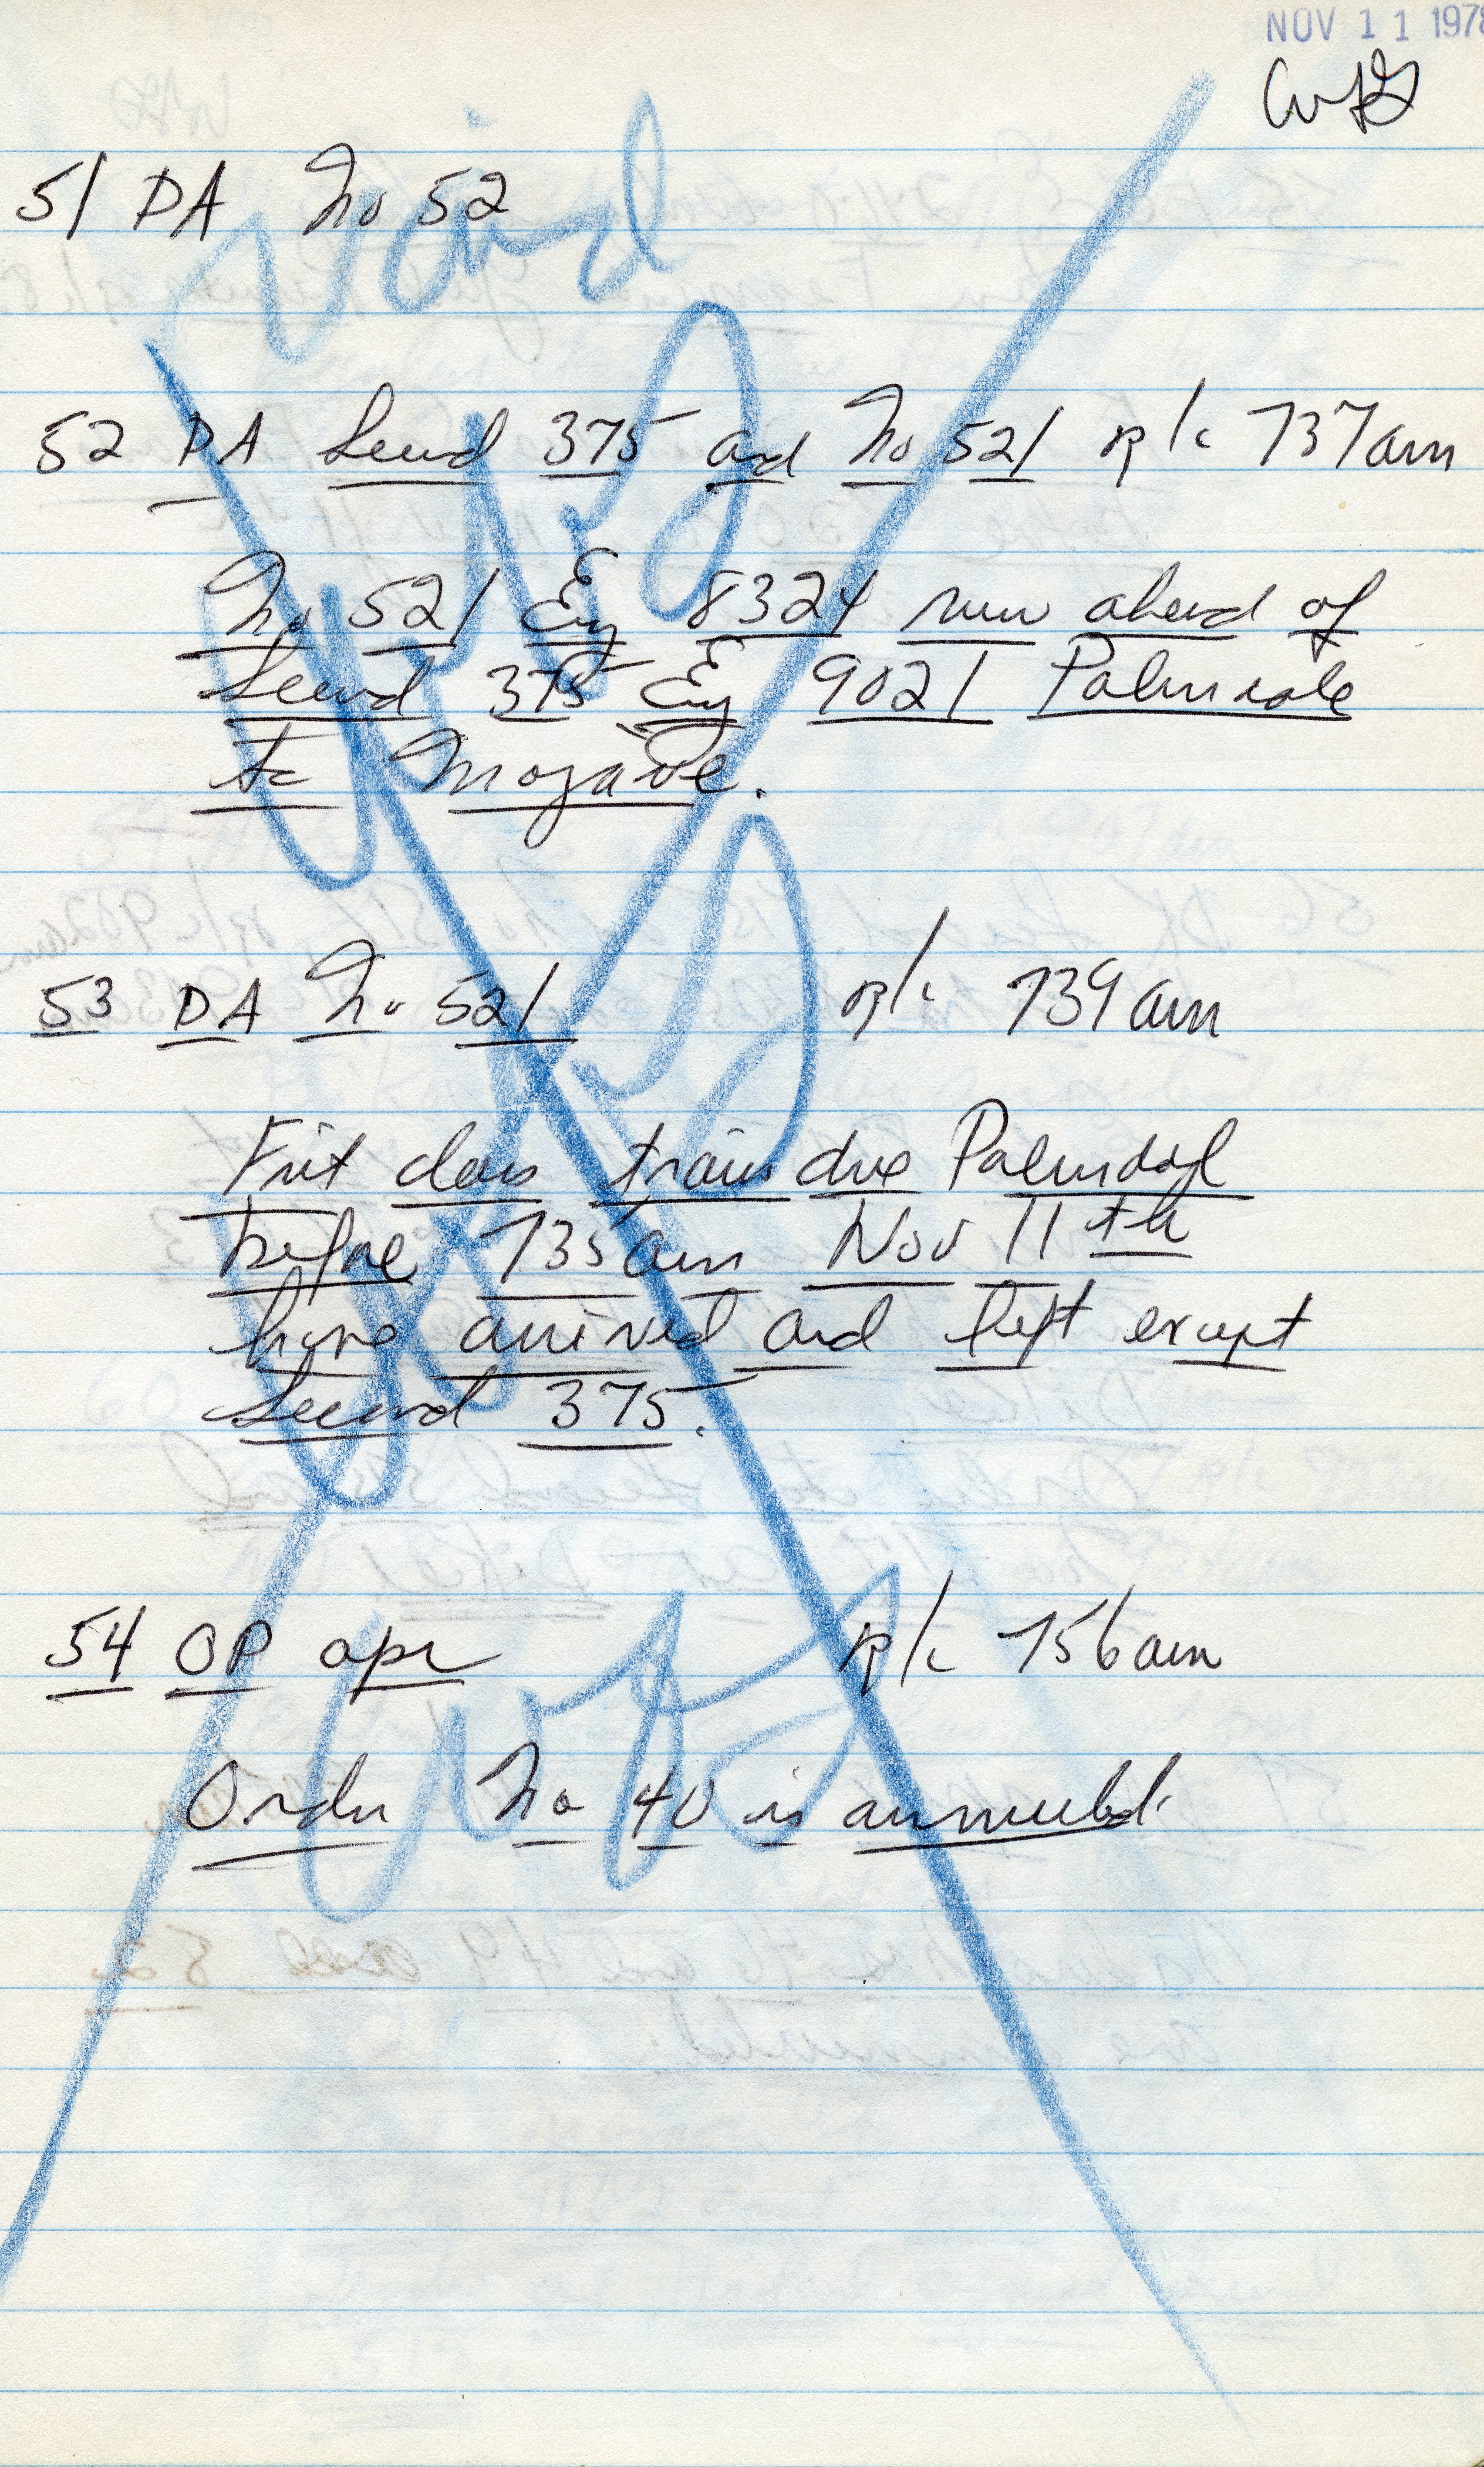 NOV 11 1978
51 DA No 52
Void
52 DA Second 375 and No 521 r/c 737am
No 521 Eng 8324 run ahead of
Second 375 Eng 9021 Palmdale
to Mojave.
53 DA No 521 r/c 739am
First class trains due Palmdale
before 735am Nov 11th
have arrived and left except
Second 375.
54 OP opr r/c 756am
Order No 40 is annulled.